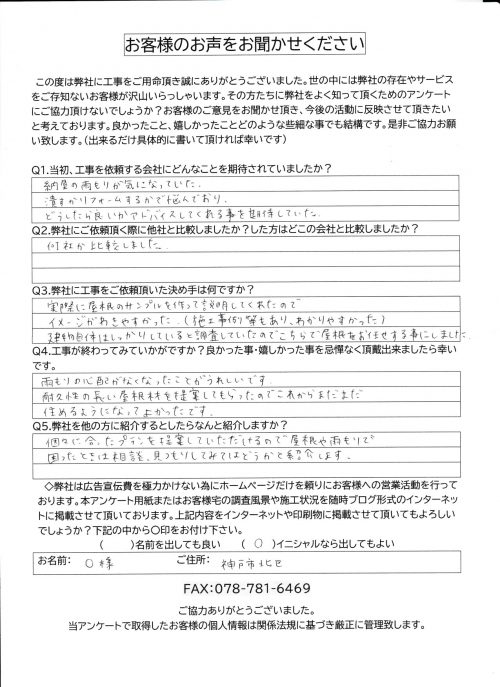 お客様のお声をお聞かせください
この度は弊社に工事をご用命頂き誠にありがとうございました。世の中には弊社の存在やサービス
をご存知ないお客様が沢山いらっしゃいます。その方たちに弊社をよく知って頂くためのアンケート
にご協力頂けないでしょうか？お客様のご意見をお聞かせ頂き、今後の活動に反映させて頂きたい
と考えております。良かったこと、嬉しかったことどのような些細な事でも結構です。是非ご協力お願
い致します。（出来るだけ具体的に書いて頂ければ幸いです）
Q1.当初、工事を依頼する会社にどんなことを期待されていましたか？
納屋の雨もりが気になっていた。
潰すかリフォームするかで悩んでおり、
どうしたら良いかアドバイスしてくれる事を期待していた。
Q2.弊社にご依頼頂く際に他社と比較しましたか？した方はどこの会社と比較しましたか？
何社か比較しました。
Q3.弊社に工事をご依頼頂いた決め手は何ですか？
実際に屋根のサンプルを作って説明してくれたので
イメージがわきやすかった。（施工事例等もあり、わかりやすかった）
建物自体はしっかりしていると調査していたのでこちらで屋根をお任せする事にしました
Q4.工事が終わってみていかがですか？良かった事・嬉しかった事を忌憚なく頂戴出来ましたら幸い
です。
雨もりの心配がなくなったことがうれしいです。
耐久性の長い屋根材を提案してもらったのでこれからまだまだ
住めるようになってよかったです。
Q5.弊社を他の方に紹介するとしたらなんと紹介しますか？
個々に合ったプランを提案していただけるので屋根や雨もりで
困ったときは相談、見つもりしてみてはどうかと紹介します。
◇弊社は広告宣伝費を極力かけない為にホームページだけを頼りにお客様への営業活動を行って
おります。本アンケート用紙またはお客様宅の調査風景や施工状況を随時ブログ形式のインターネッ
トに掲載させて頂いております。上記内容をインターネットや印刷物に掲載させて頂いてもよろしい
でしょうか？下記の中から○印をお付け下さい。
（　　）名前を出しても良い　（ ○ ）イニシャルなら出してもよい
お名前： O 様　ご住所： 神戸市北区
FAX:078-781-6469
ご協力ありがとうございました。
当アンケートで取得したお客様の個人情報は関係法規に基づき厳正に管理致します。